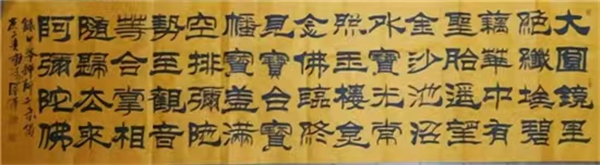 大圓鏡里
絕纖埃碧
藕華中有
聖胎遙望
金沙池沼
外寶光常
照玉樓
念佛臨終
見寶台寶
幡寶蓋滿
空排彌陀
勢至觀音
等合掌相
隨歸去來
阿彌陀佛
錄中峰禪師